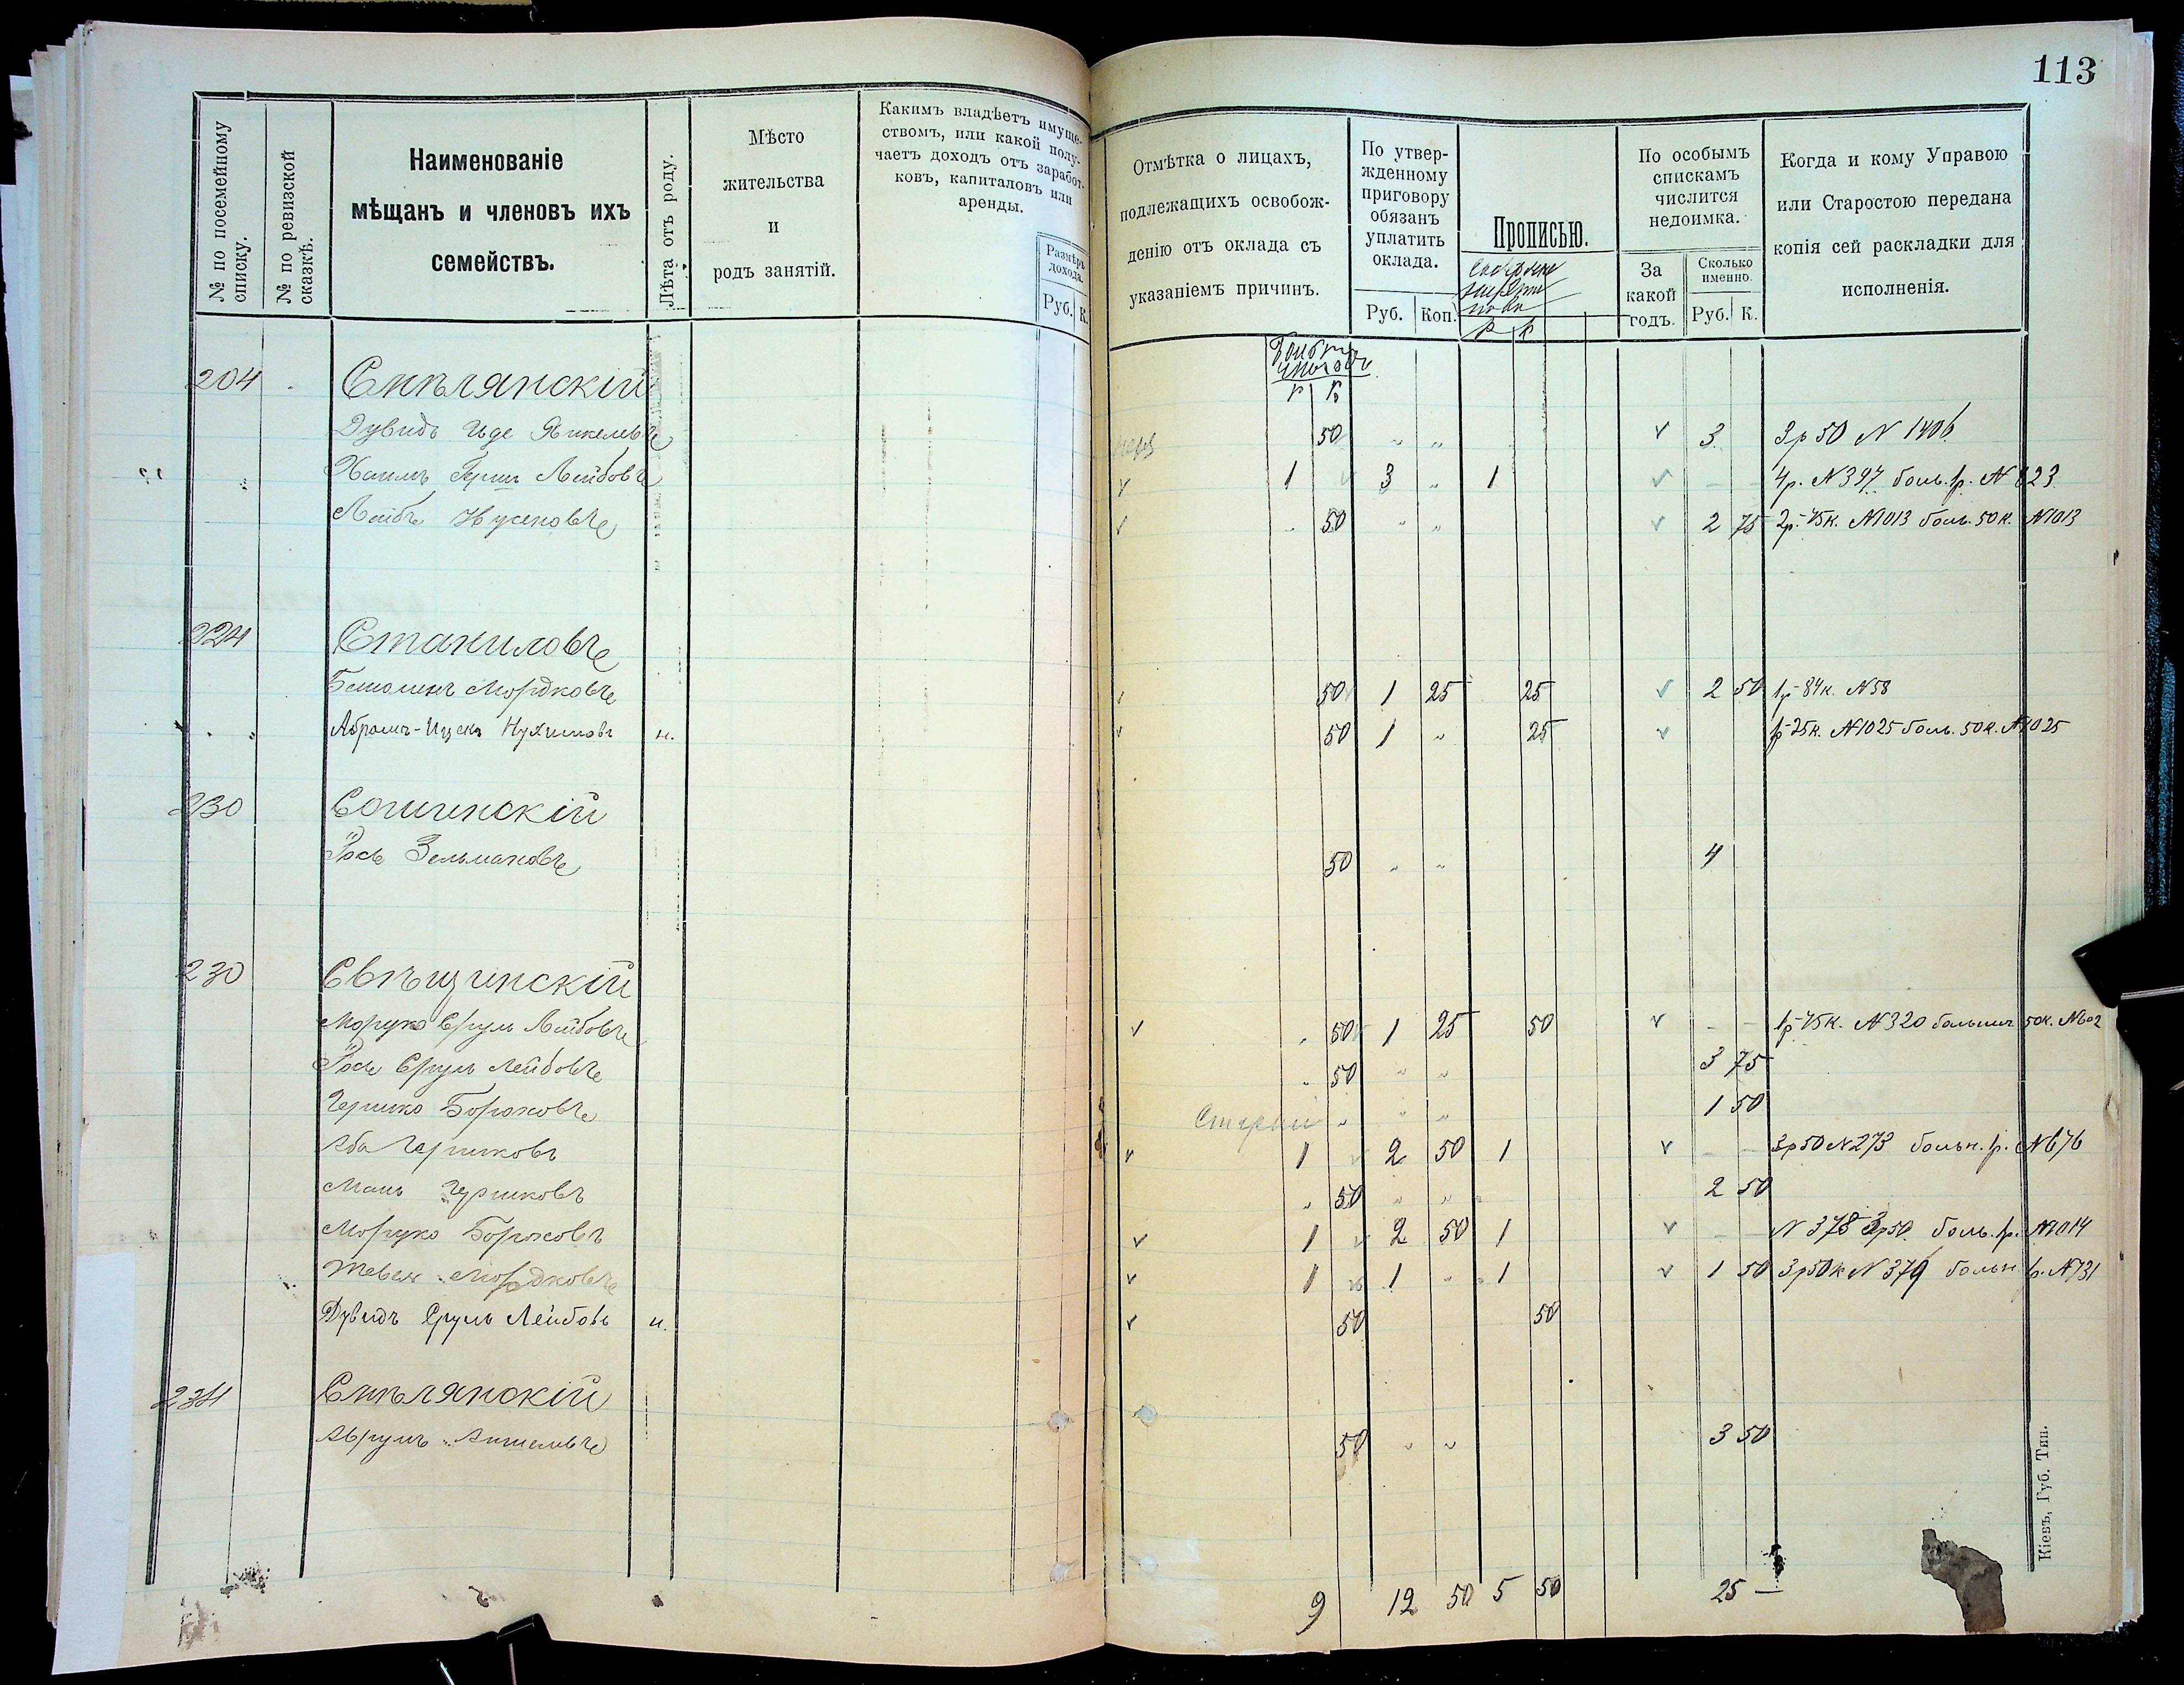 113
№ по посемейному списку.
№ по ревизской сказкѣ.
Наименованіе
мѣщанъ и членовъ ихъ
семействъ.
Лѣта отъ роду.
Мѣсто
жительства
и
родъ занятій.
Какимъ владѣетъ имуще-
ствомъ, или какой полу-
чаетъ доходъ отъ заработ-
ковъ, капиталовъ или
аренды.
Размѣръ
дохода.
Руб. К.
Отмѣтка о лицахъ,
подлежащихъ освобож-
денію отъ оклада съ
указаніемъ причинъ.
По утвер-
жденному
приговору
обязанъ
уплатить
оклада.
Руб. Коп.
Прописью.
р к
По особымъ
спискамъ
числится
недоимка.
За
какой
годъ.
Сколько
именно.
Руб. К.
Когда и кому Управою
или Старостою передана
копія сей раскладки для
исполненія.
р к
204 Смѣлянскій
Дувидъ Иде Янкелевъ 50 " " v 3 3р 50 N 1406
Хаимъ Герш Лейбовъ v 1 v 3 " 1 v - - 4р. N 397 боль. 1р. N 823
Лейбъ Нусеновъ v " 50 " " v 2 75 2р-75к. N1013 боль. 50к. N1013
224 Станиловъ
Мордковъ v 50 1 25 25 v 2 50 1р-84к. N58
Абрамъ-Ицекъ Нухимовъ н. v 50 1 " 25 v 1р-25к. N1025 боль. 50к. N1025
230 Сошинскій
Іось Зельмановъ 50 " " 4
230 Свѣщинскій
Мордко Сруль Лейбовъ v " 50 1 25 50 v - - 1р-75к. N320 больнич 50к. N602
Іось Сруль Лейбовъ " 50 " " 3 75
Гершко Борюховъ Старый " " " 1 50
Аба Гершковъ v 1 v 2 50 1 v - - 3р50 N273 больн. 1р. N676
Мань Гершковъ " 50 " " 2 50
Мордко Борюховъ v 1 v 2 50 1 v - - N 378 3р50 боль. 1р. N1014
Тевель Мордковъ v 1 v 1 " 1 v 1 50 3р50к N 379 больн 1р. N731
Дувидъ Сруль Лейбовъ н. v 50 50
234 Смѣлянскій
Аврумъ Аншелевъ 50 " " 3 50
9 12 50 5 50 25 —
Кіевъ, Губ. Тип.